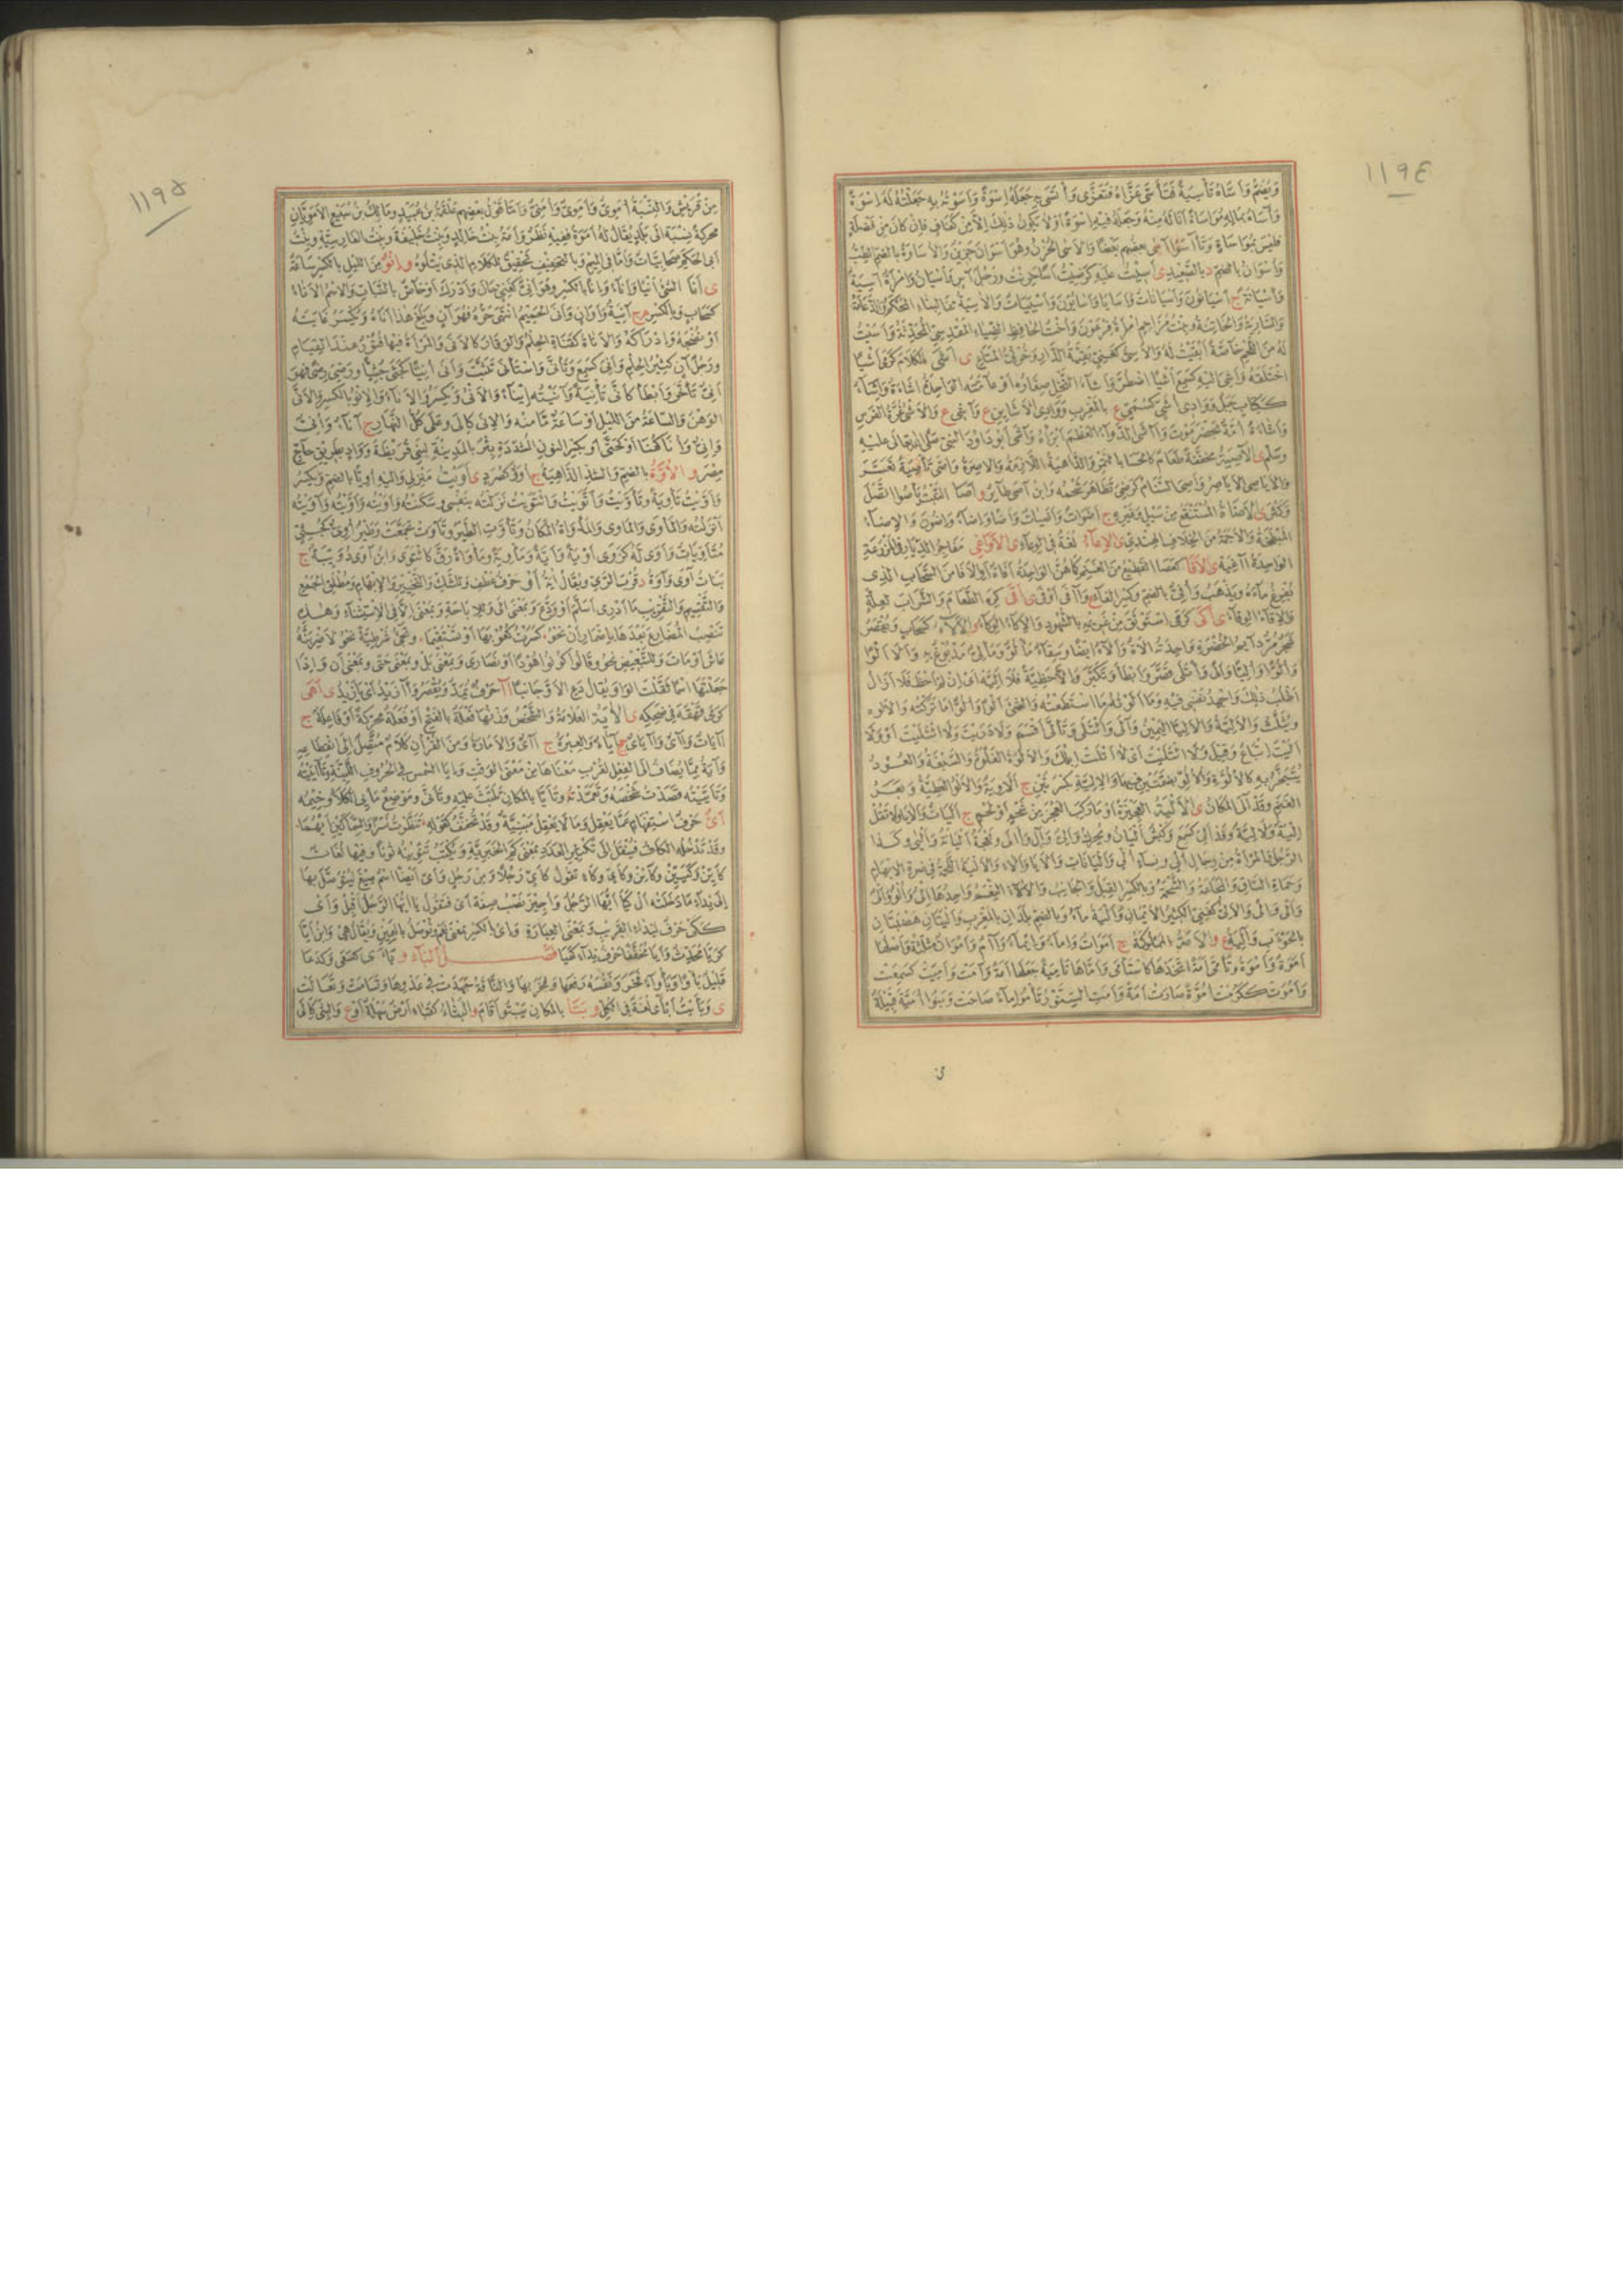 ١١٩٤
ويضم وأساه تأسية فتأسى عزاه فتعزى وأتسى به جعله إسوة وأسوته به جعلته له إسوة
وآساه بماله مواساة أناله منه وجعله فيه إسوة أو لا يكون ذلك إلا من كفاف فإن كان من فضلة
فليس بمواساة وتآسوا آسى بعضهم بعضا والأسى الحزن وهو أسوان حزين والأساوة بالضم الطب
وأسوان بالضم د بالصعيد ى أسيت عليه كرضيت أسا حزنت ورجل آس وأسيان وامرأة آسية
وأسيانة ج أسيانون وأسيانات وأسايا وأسايون وأسييات والآسية من البناء المحكم والدعامة
والسارية والخاتنة وبنت مزاحم امرأة فرعون وأخت الحافظ الضياء المقدسي المحدثة وأسيت
له من اللحم خاصة أبقيت له والآسي كغني بقية الدار وخرثي المتاع ى أشى الكلام كرمى أشيا
اختلقه وأشي إليه كسمع أشيا اضطر وأشاء النخل صغاره أو عامته الواحدة أشاءة وإشاء
ككتاب جبل ووادي أشي كسمي ع بالمغرب ووادي الأشاين ع وآشي ع والأشي غرة الفرس
وأشاءة أمة بحضرموت وآشى الدواء العظم أبرأه وآشى أبو داود النبي صلى الله تعالى عليه
وسلم ى الآصية مخففة طعام كالحسا بالتمر والداهية اللازمة والآصرة وأصى تأصية تعسر
والأياصي الأياصر وأصى السنام كرضي تظاهر شحمه وابن آصى طائر و أصا النبت يأصو اتصل
وكثر ى الأضاة المستنقع من سيل وغيره ج أضوات وأضيات وأضا وأضاء وأضون والإضاء
المبطخة والأجمة من الخلاف الهندي ى الإعاء لغة في الوعاء ى الأواغي مفاجر الديار في المزرعة
الواحدة آغية ى الأفا كعصا القطيع من الغيم كأهن الواحدة أفاة أو الأفا من السحاب الذي
يفرغ ماءه ويذهب وأفي بالضم وكسر الفاء ع وآفى أوفى ى أقى كره الطعام والشراب لعلة
والإقاة الوقاء ى أكى كرمى استوثق من غريمه بالشهود والإكاء الوكاء و الألاء كسحاب ويقصر
شجر مر دائم الخضرة واحدته ألاءة وألاء أيضا وسقاء مألوء ومألي مدبوغ به وألا ألوا
وألوا وأليا وألى وائتلى قصر وأبطأ وتكبر وإلا حظية فلا ألية أي إن لم أحظ فلا أزال
أطلب ذلك وأجهد نفسي فيه وما ألوته ما استطعته والشيء ألوا وألوا ما تركته والألوة
ويثلث والألية والأليا اليمين وآلى وائتلى وتألى أقسم ولا دريت ولا ائتليت أو ولا
أليت إتباع وقيل ولا أتليت أي لا أتلت إبلك والألوة الغلوة والسبقة والعود
يتبخر به كالألوة والألو بضمتين فيهما والإلية بكسرتين ج ألاوية والألو العطية وبعر
الغنم وقد ألى المكان ى الألية العجيزة أو ما ركب العجز من شحم أو لحم ج أليات وألايا ولا تقل
إلية ولا لية وقد ألي كسمع وكبش أليان ويحرك وألى وآل وآلى ونعجة أليانة وأليى وكذا
الرجل والمرأة من رجال ألي ونساء ألي وأليانات وألايا وألاء والألية اللحمة في ضرة الإبهام
وحماة الساق والمجاعة والشحمة وبالكسر القبل والجانب والآلاء النعم واحدها إلى وألو وألى
وألى وإلى والألي كغني الكثير الأيمان وألية ماء وبالضم بلدان بالمغرب وأليتان هضبتان
بالحوأب وأليهة ع و الأمة المملوكة ج أموات وإماء وإيماء وآم وأموان مثلثة وأصلها
أموة وأموة وتأمى أمة اتخذها كاستأمى وأماها تأمية جعلها أمة وأمت وأميت كسمعت
وأموت ككرمت أموة صارت أمة وأمت السنور تأمو إماء صاحت وبنو أمية قبيلة
١١٩٥
من قريش والنسبة أموي وأموي وأميي وأما قول بعضهم علقمة بن عبيد ومالك بن سبيع الأمويان
محركة نسبة إلى بلد يقال له أموة ففيه نظر وأمة بنت خالد وبنت خليفة وبنت الفارسية وبنت
أبي الحكم صحابيات وأما في الميم وبالتخفيف تحقيق للكلام الذي يتلوه و إنو من الليل بالكسر ساعة
ى أنى الشيء أنيا وأناء وإنى بالكسر وهو أني كغني حان وأدرك أو خاص بالنبات والاسم الأناء
كسحاب وبالكسر م ج آنية وأوان وأنى الحميم انتهى حره فهو آن وبلغ هذا أناه ويكسر غايته
أو نضجه وإدراكه والأناة كقناة الحلم والوقار كالأنى والمرأة فيها فتور عند القيام
ورجل آن كثير الحلم وأني كسمع وتأنى واستأنى تثبت وأنى أنيا كجثى جثيا ورضي رضى فهو
أني تأخر وأبطأ كأنى تأنية وآنيته إيناء والأنى ويكسر والأناء والإنو بالكسر والأنى
الوهن والساعة من الليل أو ساعة ما منه والإنى كإلى وعلى كل النهار ج آناء وأني
وإني وأنا كهنا أو كحتى أو بكسر النون المشددة بئر بالمدينة لبني قريظة وواد بطريق حاج
مصر و الأوة بالضم والشد الداهية ج أوو كصرد ى أويت منزلي وإليه أويا بالضم ويكسر
وأويت تأوية وتأويت وأتويت وائتويت نزلته بنفسي وسكنته وأويته وأويته وآويته
أنزلته والمأوى والمأوي والمأواة المكان وتأوت الطير وتآوت تجمعت وطير أوي كجثي
متأويات وأوى له كرمى أوية وأية ومأوية ومأواة رق كائتوى وابن آوى دويبة ج
بنات آوى وآوة د قرب الري ويقال آبة أو حرف عطف وللشك والتخيير والإبهام ومطلق الجمع
والتقسيم والتقريب ما أدري أسلم أو ودع وبمعنى إلى وللإباحة وبمعنى إلا في الاستثناء وهذه
تنصب المضارع بعدها بإضمار أن نحو كسرت كعوبها أو تستقيما وتجيء شرطية نحو لأضربنه
عاش أو مات وللتبعيض نحو وقالوا كونوا هودا أو نصارى وبمعنى بل وبمعنى حتى وبمعنى أن وإذا
جعلتها اسما ثقلت الواو ويقال دع الأو جانبا آ حرف يمد ويقصر وآ أزيد أي يا زيد ى أهى
كرمى قهقه في ضحكه ى الآية العلامة والشخص وزنها فعلة بالفتح أو فعلة محركة أو فاعلة ج
آيات وآي وآياي جج آياء والعبرة ج آي والأمارة ومن القرآن كلام متصل إلى انقطاعه
وآية مما يضاف إلى الفعل لقرب معناها من معنى الوقت وإيا الشمس في الحروف اللينة وتآييته
وتأييته قصدت شخصه وتعمدته وتأيا بالمكان تلبث عليه وتأنى وموضع مأيي الكلإ وخيمه
أي حرف استفهام عما يعقل وما لا يعقل مبنية وقد تخفف كقوله تنظرت نسرا والسماكين أيهما
وقد تدخله الكاف فينقل إلى تكثير العدد بمعنى كم الخبرية ويكتب تنوينه نونا وفيها لغات
كأين وكيين وكائن وكأي وكاء تقول كأين رجلا ومن رجل وأي أيضا اسم صيغ ليتوصل بها
إلى نداء ما دخلته أل كيا أيها الرجل وأجيز نصب صفة أي فتقول يا أيها الرجل أقبل وأي
ككي حرف لنداء القريب وبمعنى العبارة وإي بالكسر بمعنى نعم وتوصل باليمين ويقال هي وابن أيا
كريا محدث وأيا مخففا حرف نداء كهيا فصل الباء و بأى كسعى وكدعا
قليل بأوا وبأواء فخر ونفسه رفعها وفخر بها والناقة جهدت في عدوها وتسامت وتعالت
ى وبأيت أبأى لغة في الكل و بتا بالمكان يبتو أقام و البثاء كقباء أرض سهلة أو ع والبثي كإلى